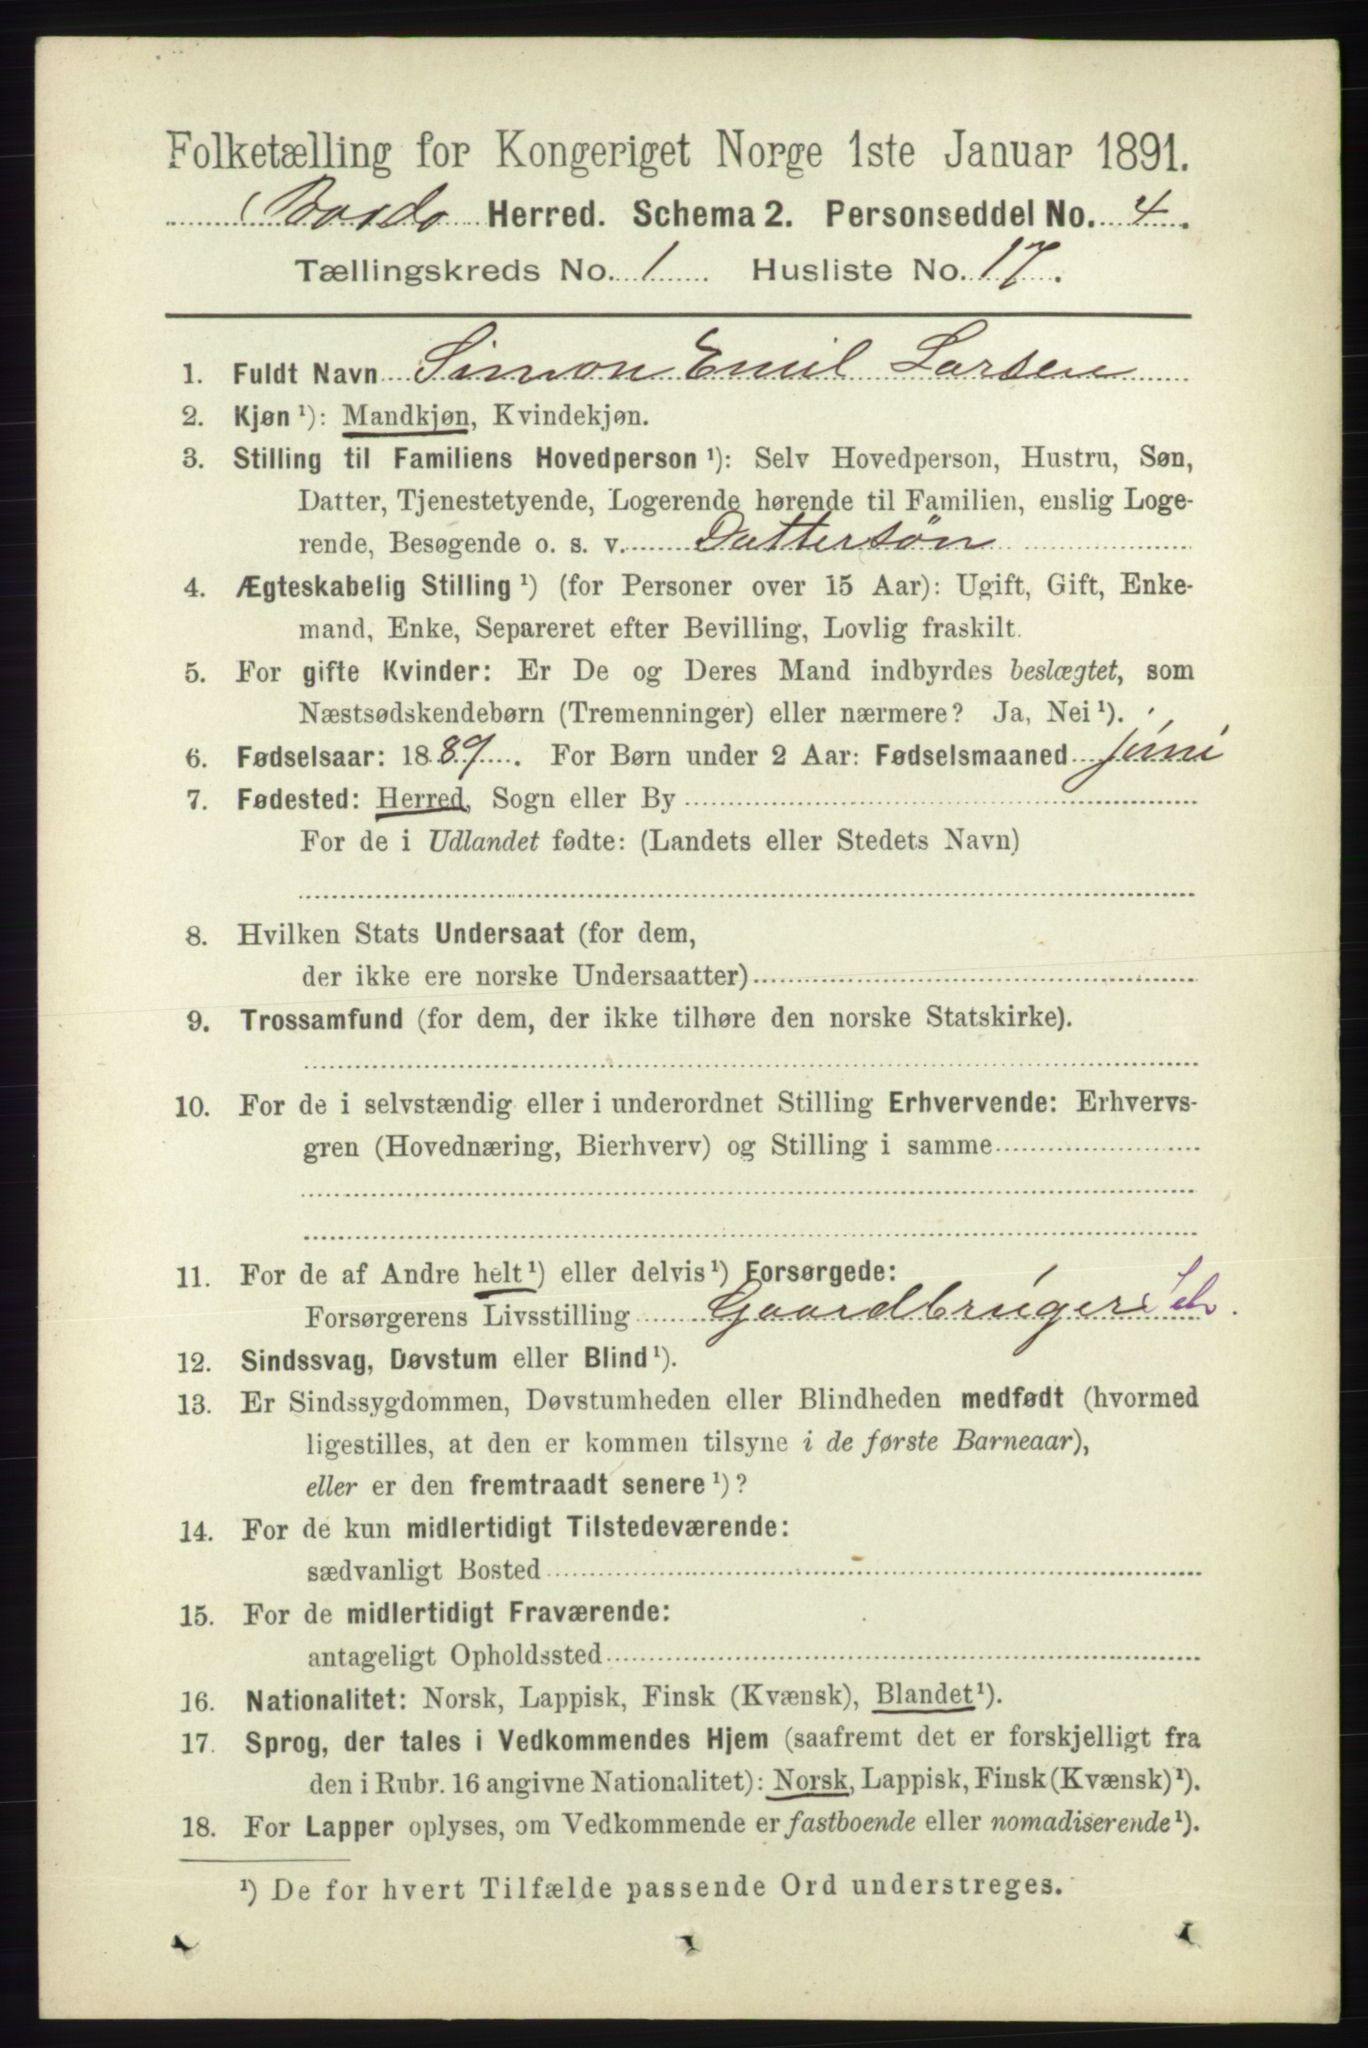 Folketælling for Kongeriget Norge 1ste Januar 1891.
Bardo Herred. Schema 2. Personseddel No. 4.
Tællingskreds No. 1 Husliste No. 17.
1. Fuldt Navn Simon Emil Larsen
2. Kjøn ¹): Mandkjøn, Kvindekjøn.
3. Stilling til Familiens Hovedperson ¹): Selv Hovedperson, Hustru, Søn,
Datter, Tjenestetyende, Logerende hørende til Familien, enslig Loge-
rende, Besøgende o. s. v. Dattersøn
4. Ægteskabelig Stilling ¹) (for Personer over 15 Aar): Ugift, Gift, Enke-
mand, Enke, Separeret efter Bevilling, Lovlig fraskilt.
5. For gifte Kvinder: Er De og Deres Mand indbyrdes beslægtet, som
Næstsødskendebørn (Tremenninger) eller nærmere? Ja, Nei ¹).
6. Fødselsaar: 1889. For Børn under 2 Aar: Fødselsmaaned juni
7. Fødested: Herred, Sogn eller By
For de i Udlandet fødte: (Landets eller Stedets Navn)
8. Hvilken Stats Undersaat (for dem,
der ikke ere norske Undersaatter)
9. Trossamfund (for dem, der ikke tilhøre den norske Statskirke).
10. For de i selvstændig eller i underordnet Stilling Erhvervende: Erhvervs-
gren (Hovednæring, Bierhverv) og Stilling i samme
11. For de af Andre helt ¹) eller delvis ¹) Forsørgede:
Forsørgerens Livsstilling Gaardbruger
12. Sindssvag, Døvstum eller Blind ¹).
13. Er Sindssygdommen, Døvstumheden eller Blindheden medfødt (hvormed
ligestilles, at den er kommen tilsyne i de første Barneaar),
eller er den fremtraadt senere ¹)?
14. For de kun midlertidigt Tilstedeværende:
sædvanligt Bosted
15. For de midlertidigt Fraværende:
antageligt Opholdssted
16. Nationalitet: Norsk, Lappisk, Finsk (Kvænsk), Blandet ¹).
17. Sprog, der tales i Vedkommendes Hjem (saafremt det er forskjelligt fra
den i Rubr. 16 angivne Nationalitet): Norsk, Lappisk, Finsk (Kvænsk) ¹).
18. For Lapper oplyses, om Vedkommende er fastboende eller nomadiserende ¹).
¹) De for hvert Tilfælde passende Ord understreges.